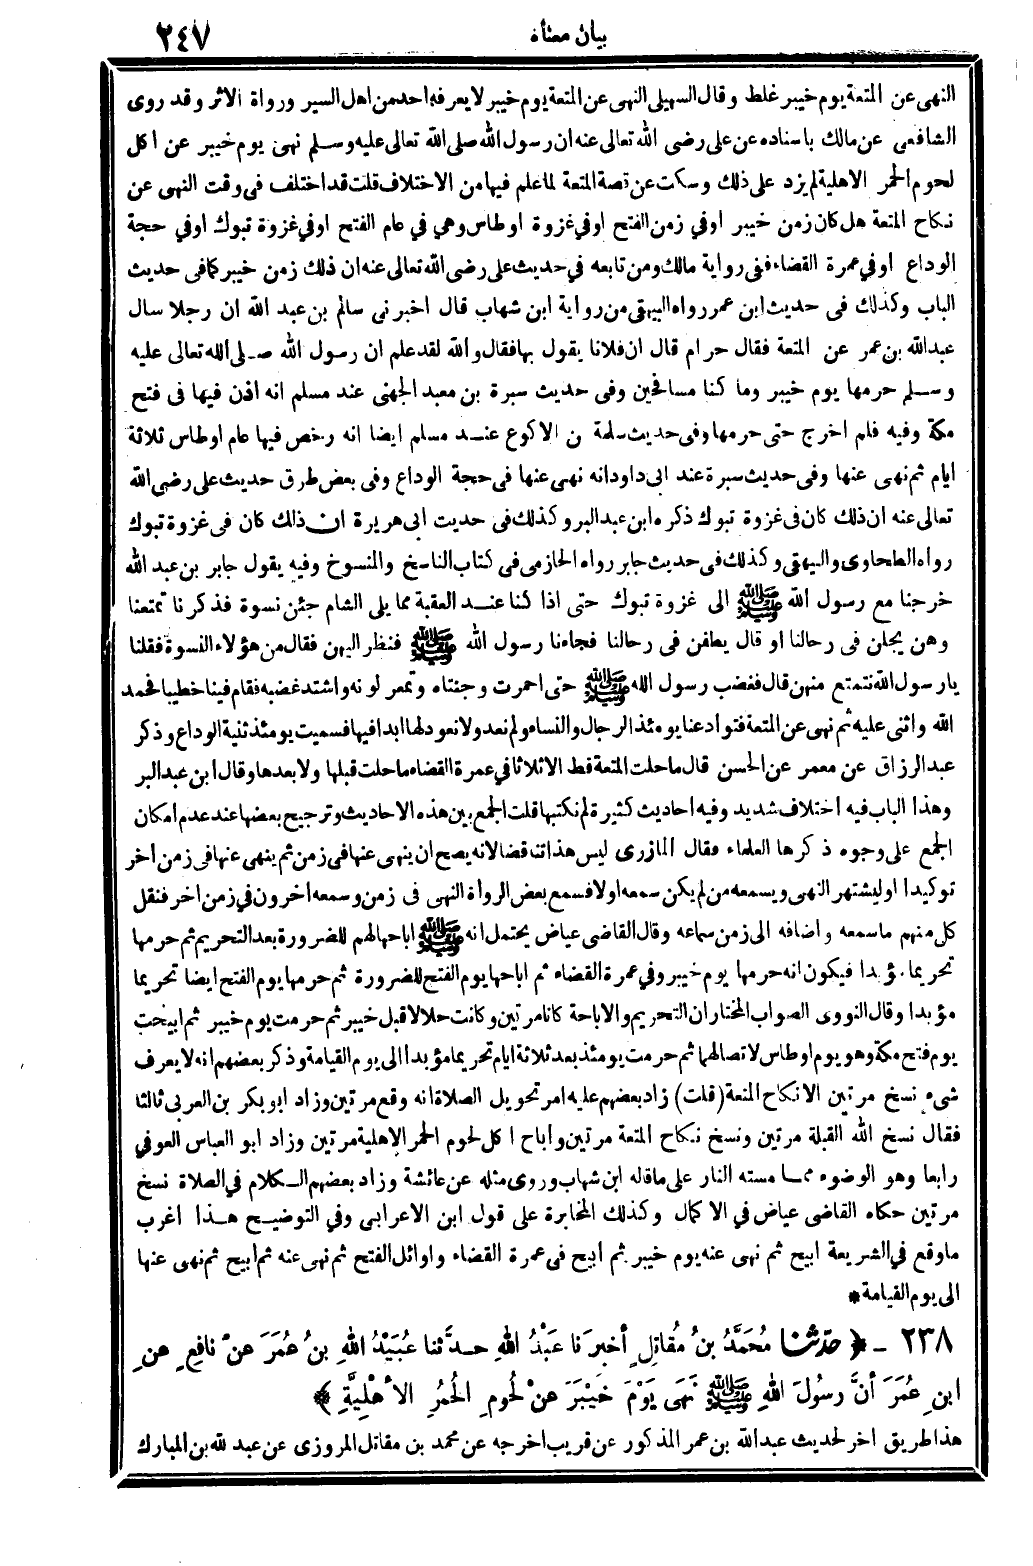 بيان معناه ٢٤٧
النهى عن المتعة يوم خيبر غلط وقال السهيلى النهى عن المتعة يوم خيبر لا يعرفه احد من اهل السير ورواة الاثر وقد روى
الشافعى عن مالك باسناده عن على رضى الله تعالى عنه ان رسول الله صلى الله تعالى عليه وسلم نهى يوم خيبر عن اكل
لحوم الحمر الاهلية لم يزد على ذلك وسكت عن قصة المتعة لما علم فيها من الاختلاف قلت قد اختلف فى وقت النهى عن
نكاح المتعة هل كان زمن خيبر اوفي زمن الفتح اوفي غزوة اوطاس وهي في عام الفتح اوفي غزوة تبوك اوفي حجة
الوداع اوفي عمرة القضاء ففى رواية مالك ومن تابعه في حديث على رضى الله تعالى عنه ان ذلك زمن خيبر كما فى حديث
الباب وكذلك فى حديث ابن عمر رواه البيهقى من رواية ابن شهاب قال اخبرنى سالم بن عبد الله ان رجلا سال
عبدالله بن عمر عن المتعة فقال حرام قال ان فلانا يقول بها فقال والله لقد علم ان رسول الله صلى الله تعالى عليه
وسلم حرمها يوم خيبر وما كنا مسافحين وفى حديث سبرة بن معبد الجهنى عند مسلم انه اذن فيها فى فتح
مكة وفيه فلم اخرج حتى حرمها وفى حديث سلمة ن الاكوع عند مسلم ايضا انه رخص فيها عام اوطاس ثلاثة
ايام ثم نهى عنها وفى حديث سبرة عند ابى داود انه نهى عنها فى حجة الوداع وفى بعض طرق حديث على رضى الله
تعالى عنه ان ذلك كان فى غزوة تبوك ذكره ابن عبد البر وكذلك فى حديث ابى هريرة ان ذلك كان فى غزوة تبوك
رواه الطحاوى والبيهقى وكذلك فى حديث جابر رواه الحازمى فى كتاب الناسخ والمنسوخ وفيه يقول جابر بن عبد الله
خرجنا مع رسول الله ﷺ الى غزوة تبوك حتى اذا كنا عند العقبة مما يلى الشام جئن نسوة فذكرنا تمتعنا
وهن يجلن فى رحالنا او قال يطفن فى رحالنا فجاءنا رسول الله ﷺ فنظر اليهن فقال من هؤلاء النسوة فقلنا
يارسول الله نتمتع منهن قال فغضب رسول الله ﷺ حتى احمرت وجنتاه وتمعر لونه واشتد غضبه فقام فينا خطيبا فحمد
الله واثنى عليه ثم نهى عن المتعة فتوادعنا يومئذ الرجال والنساء ولم نعد ولا نعود لها ابدا فيها فسميت يومئذ ثنية الوداع وذكر
عبد الرزاق عن معمر عن الحسن قال ما حلت المتعة قط الا ثلاثا في عمرة القضاء ما حلت قبلها ولا بعدها وقال ابن عبد البر
وهذا الباب فيه اختلاف شديد وفيه احاديث كثيرة لم نكتبها قلت الجمع بين هذه الاحاديث وترجيح بعضها عند عدم امكان
الجمع على وجوه ذكرها العلماء فقال المازرى ليس هذا تناقضا لانه يصح ان ينهى عنها فى زمن ثم ينهى عنها فى زمن اخر
توكيدا او ليشتهر النهى ويسمعه من لم يكن سمعه اولا فسمع بعض الرواة النهى فى زمن وسمعه اخرون في زمن اخر فنقل
كل منهم ما سمعه واضافه الى زمن سماعه وقال القاضى عياض يحتمل انه ﷺ اباحها لهم للضرورة بعد التحريم ثم حرمها
تحريما مؤبدا فيكون انه حرمها يوم خيبر وفي عمرة القضاء ثم اباحها يوم الفتح للضرورة ثم حرمها يوم الفتح ايضا تحريما
مؤبدا وقال النووى الصواب المختار ان التحريم والاباحة كانا مرتين وكانت حلالا قبل خيبر ثم حرمت يوم خيبر ثم ابيحت
يوم فتح مكة وهو يوم اوطاس لاتصالهما ثم حرمت يومئذ بعد ثلاثة ايام تحريما مؤبدا الى يوم القيامة وذكر بعضهم انه لا يعرف
شىء نسخ مرتين الا نكاح المتعة (قلت) زاد بعضهم عليه امر تحويل الصلاة انه وقع مرتين وزاد ابو بكر بن العربى ثالثا
فقال نسخ الله القبلة مرتين ونسخ نكاح المتعة مرتين واباح اكل لحوم الحمر الاهلية مرتين وزاد ابو العباس العوفي
رابعا وهو الوضوء مما مسته النار على ما قاله ابن شهاب وروى مثله عن عائشة وزاد بعضهم الكلام في الصلاة نسخ
مرتين حكاه القاضى عياض في الاكمال وكذلك المخابرة على قول ابن الاعرابى وفي التوضيح هذا اغرب
ما وقع في الشريعة ابيح ثم نهى عنه يوم خيبر ثم ابيح فى عمرة القضاء واوائل الفتح ثم نهى عنه ثم ابيح ثم نهى عنها
الى يوم القيامة *
٢٣٨ - ﴿ حَدَّثنا مُحَمَّدُ بنُ مُقاتِلٍ أخبرَنا عَبْدُ اللهِ حدَّثنا عُبَيْدُ اللهِ بنُ عُمَرَ عنْ نافِعٍ عنِ
ابنِ عُمَرَ أنَّ رسُولَ اللهِ ﷺ نَهَى يَوْمَ خَيْبَرَ عنْ لُحومِ الحُمُرِ الأهْلِيَّةِ ﴾
هذا طريق اخر لحديث عبد الله بن عمر المذكور عن قريب اخرجه عن محمد بن مقاتل المروزى عن عبد لله بن المبارك